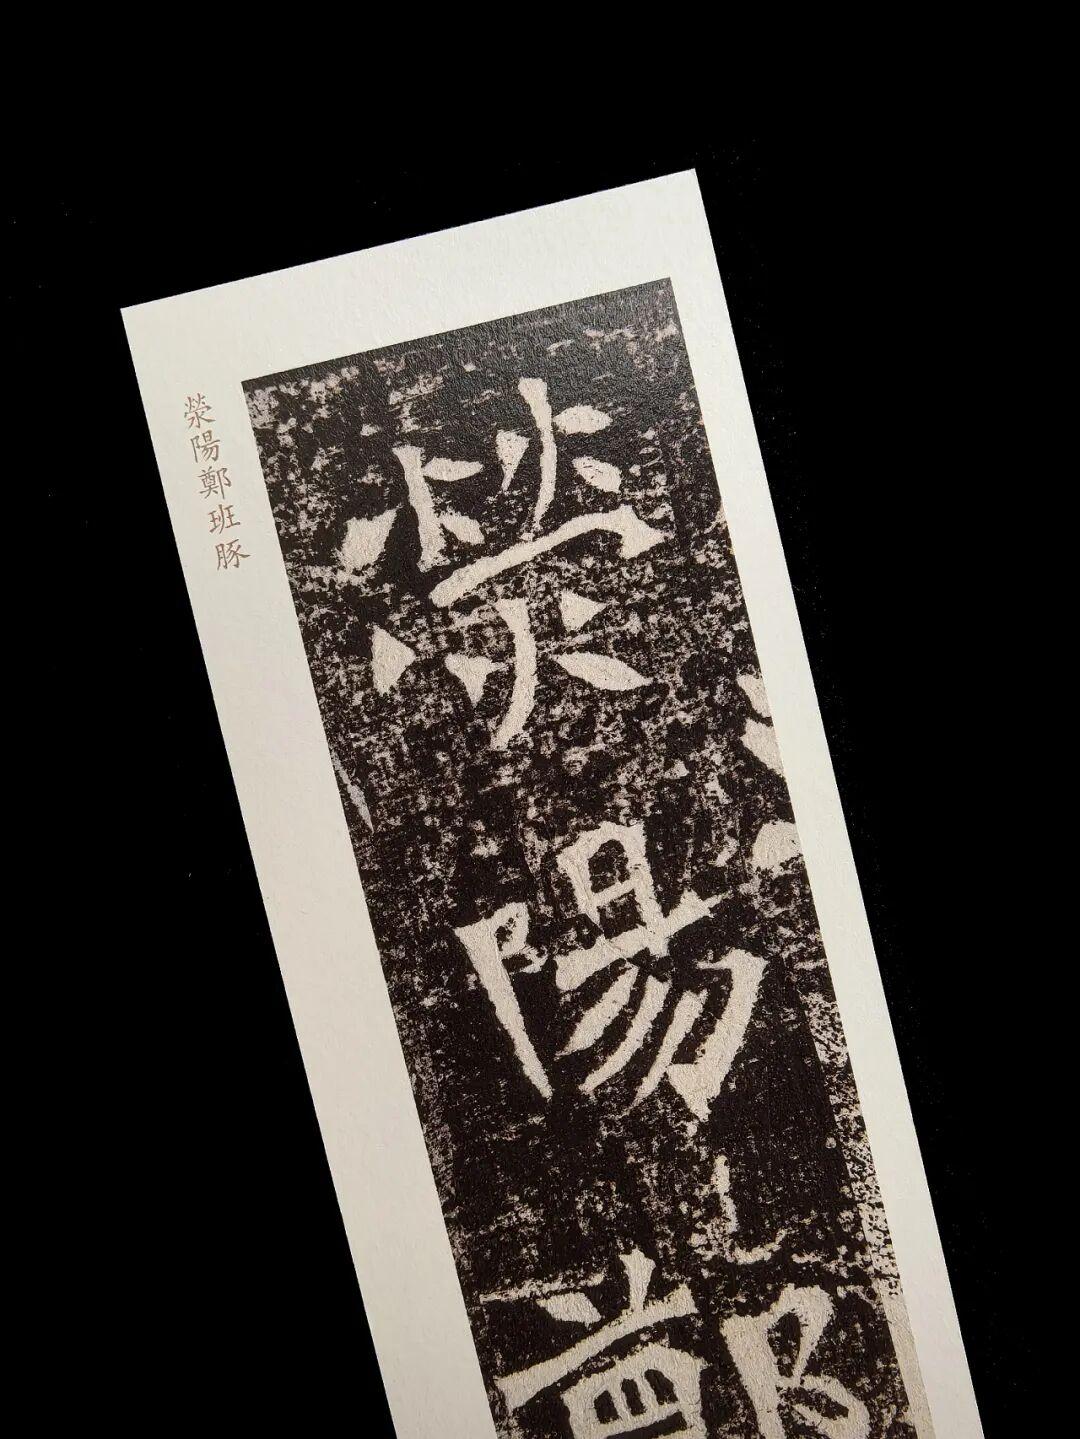 滎陽鄭班豚
滎陽鄭